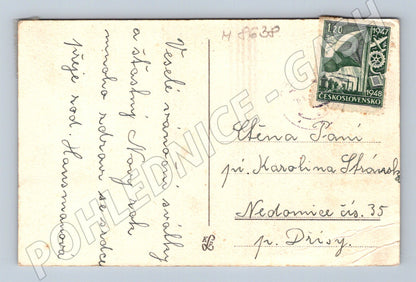 Veselé vánoční svátky
a šťastný Nový rok
mnoho zdraví ze srdce
přeje rod. Hansmanova
M 8638
1.20
1947
1948
ČESKOSLOVENSKO
Ctěna Paní
pí. Karolina Stránsk
Nedomice čís. 35
p. Dřísy.
POHLEDNICE - G